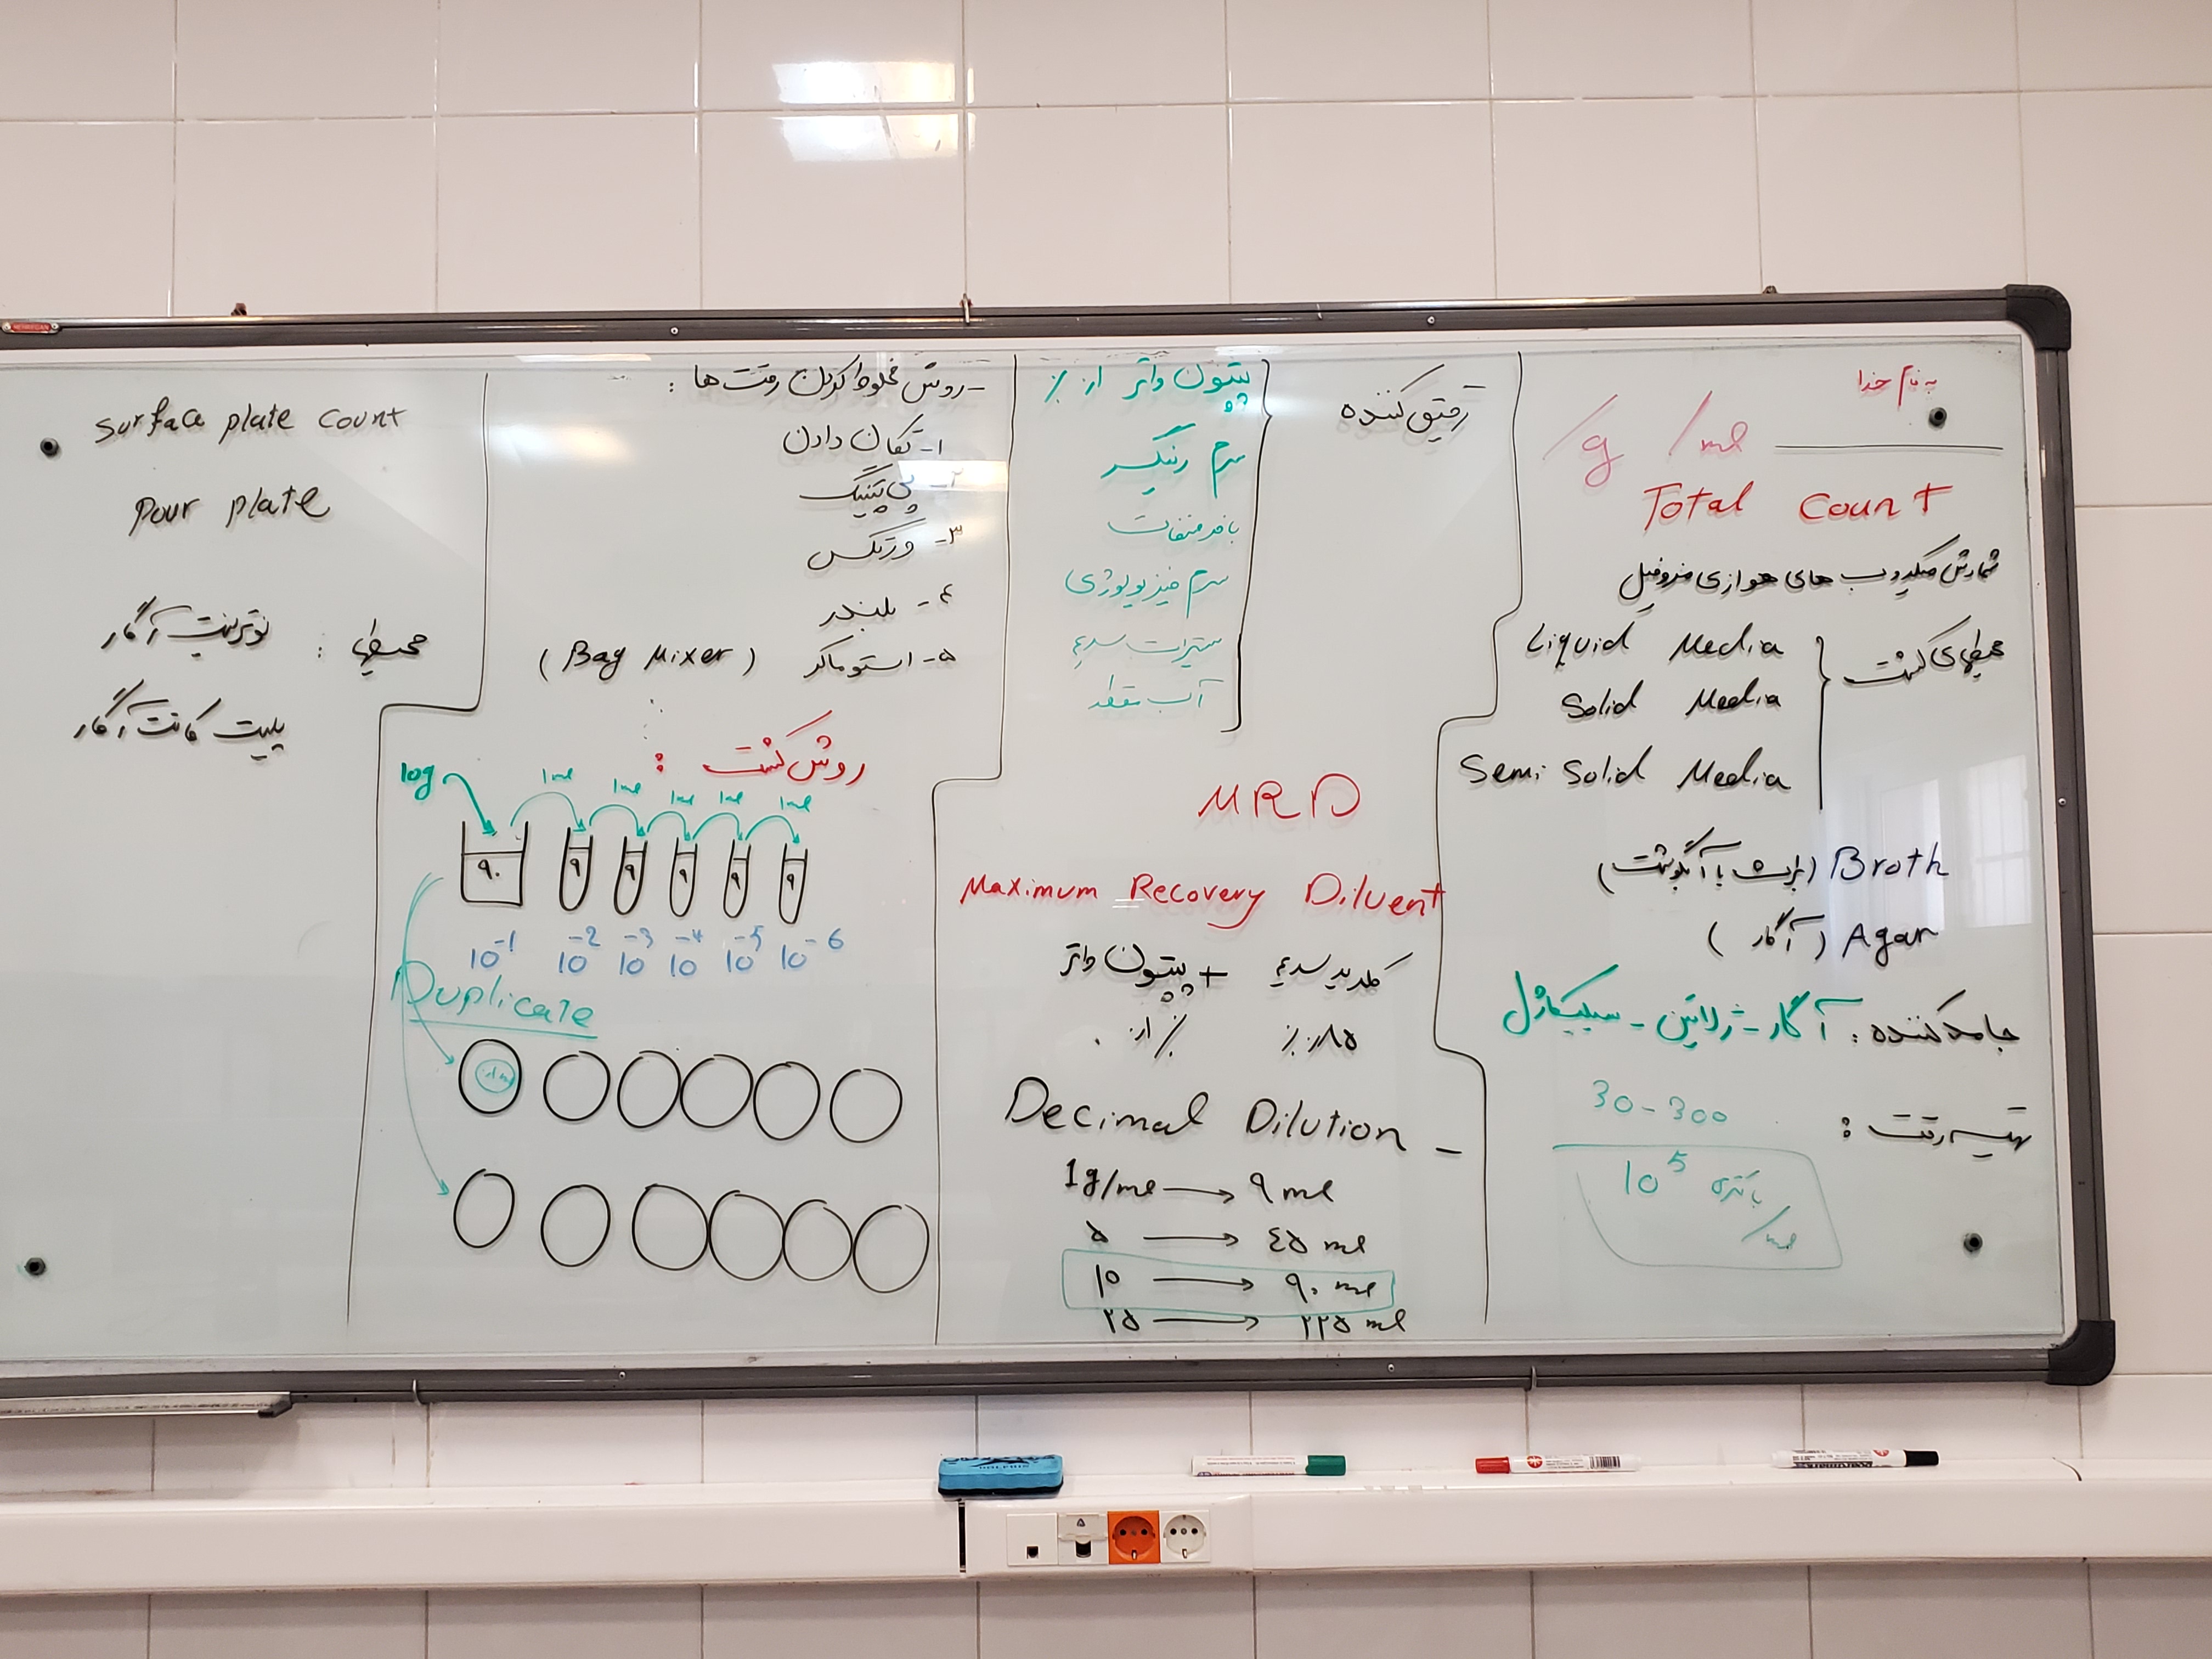 به نام خدا
/g /ml
Total Count
شمارش میکروب های هوازی مزوفیل
محیطهای کشت
Liquid Media
Solid Media
Semi Solid Media
Broth (براث یا آبگوشت)
Agar (آگار)
جامد کننده: آگار - ژلاتین - سیلیکاژل
تهیه رقت:
30-300
10^5 باکتری
/ml
رقیق کننده
پپتون واتر ٠/١ %
سرم رینگر
بافر فسفات
سرم فیزیولوژی
سیترات سدیم
آب مقطر
MRD
Maximum Recovery Diluent
کلرید سدیم + پپتون واتر
٠/٨٥ % ٠/١ %
Decimal Dilution -
1g/ml → ٩ ml
٥ → ٤٥ ml
10 → ٩٠ ml
٢٥ → ٢٢٥ ml
- روش مخلوط کردن رقت ها:
١- تکان دادن
٢- پی پتینگ
٣- ورتکس
٤- بلندر
٥- استوماکر (Bag Mixer)
روش کشت:
10g 1ml 1ml 1ml 1ml 1ml
٩٠ ٩ ٩ ٩ ٩ ٩
10^-1 10^-2 10^-3 10^-4 10^-5 10^-6
Duplicate
Surface plate count
Pour plate
محیط: نوترینت آگار
پلیت کانت آگار